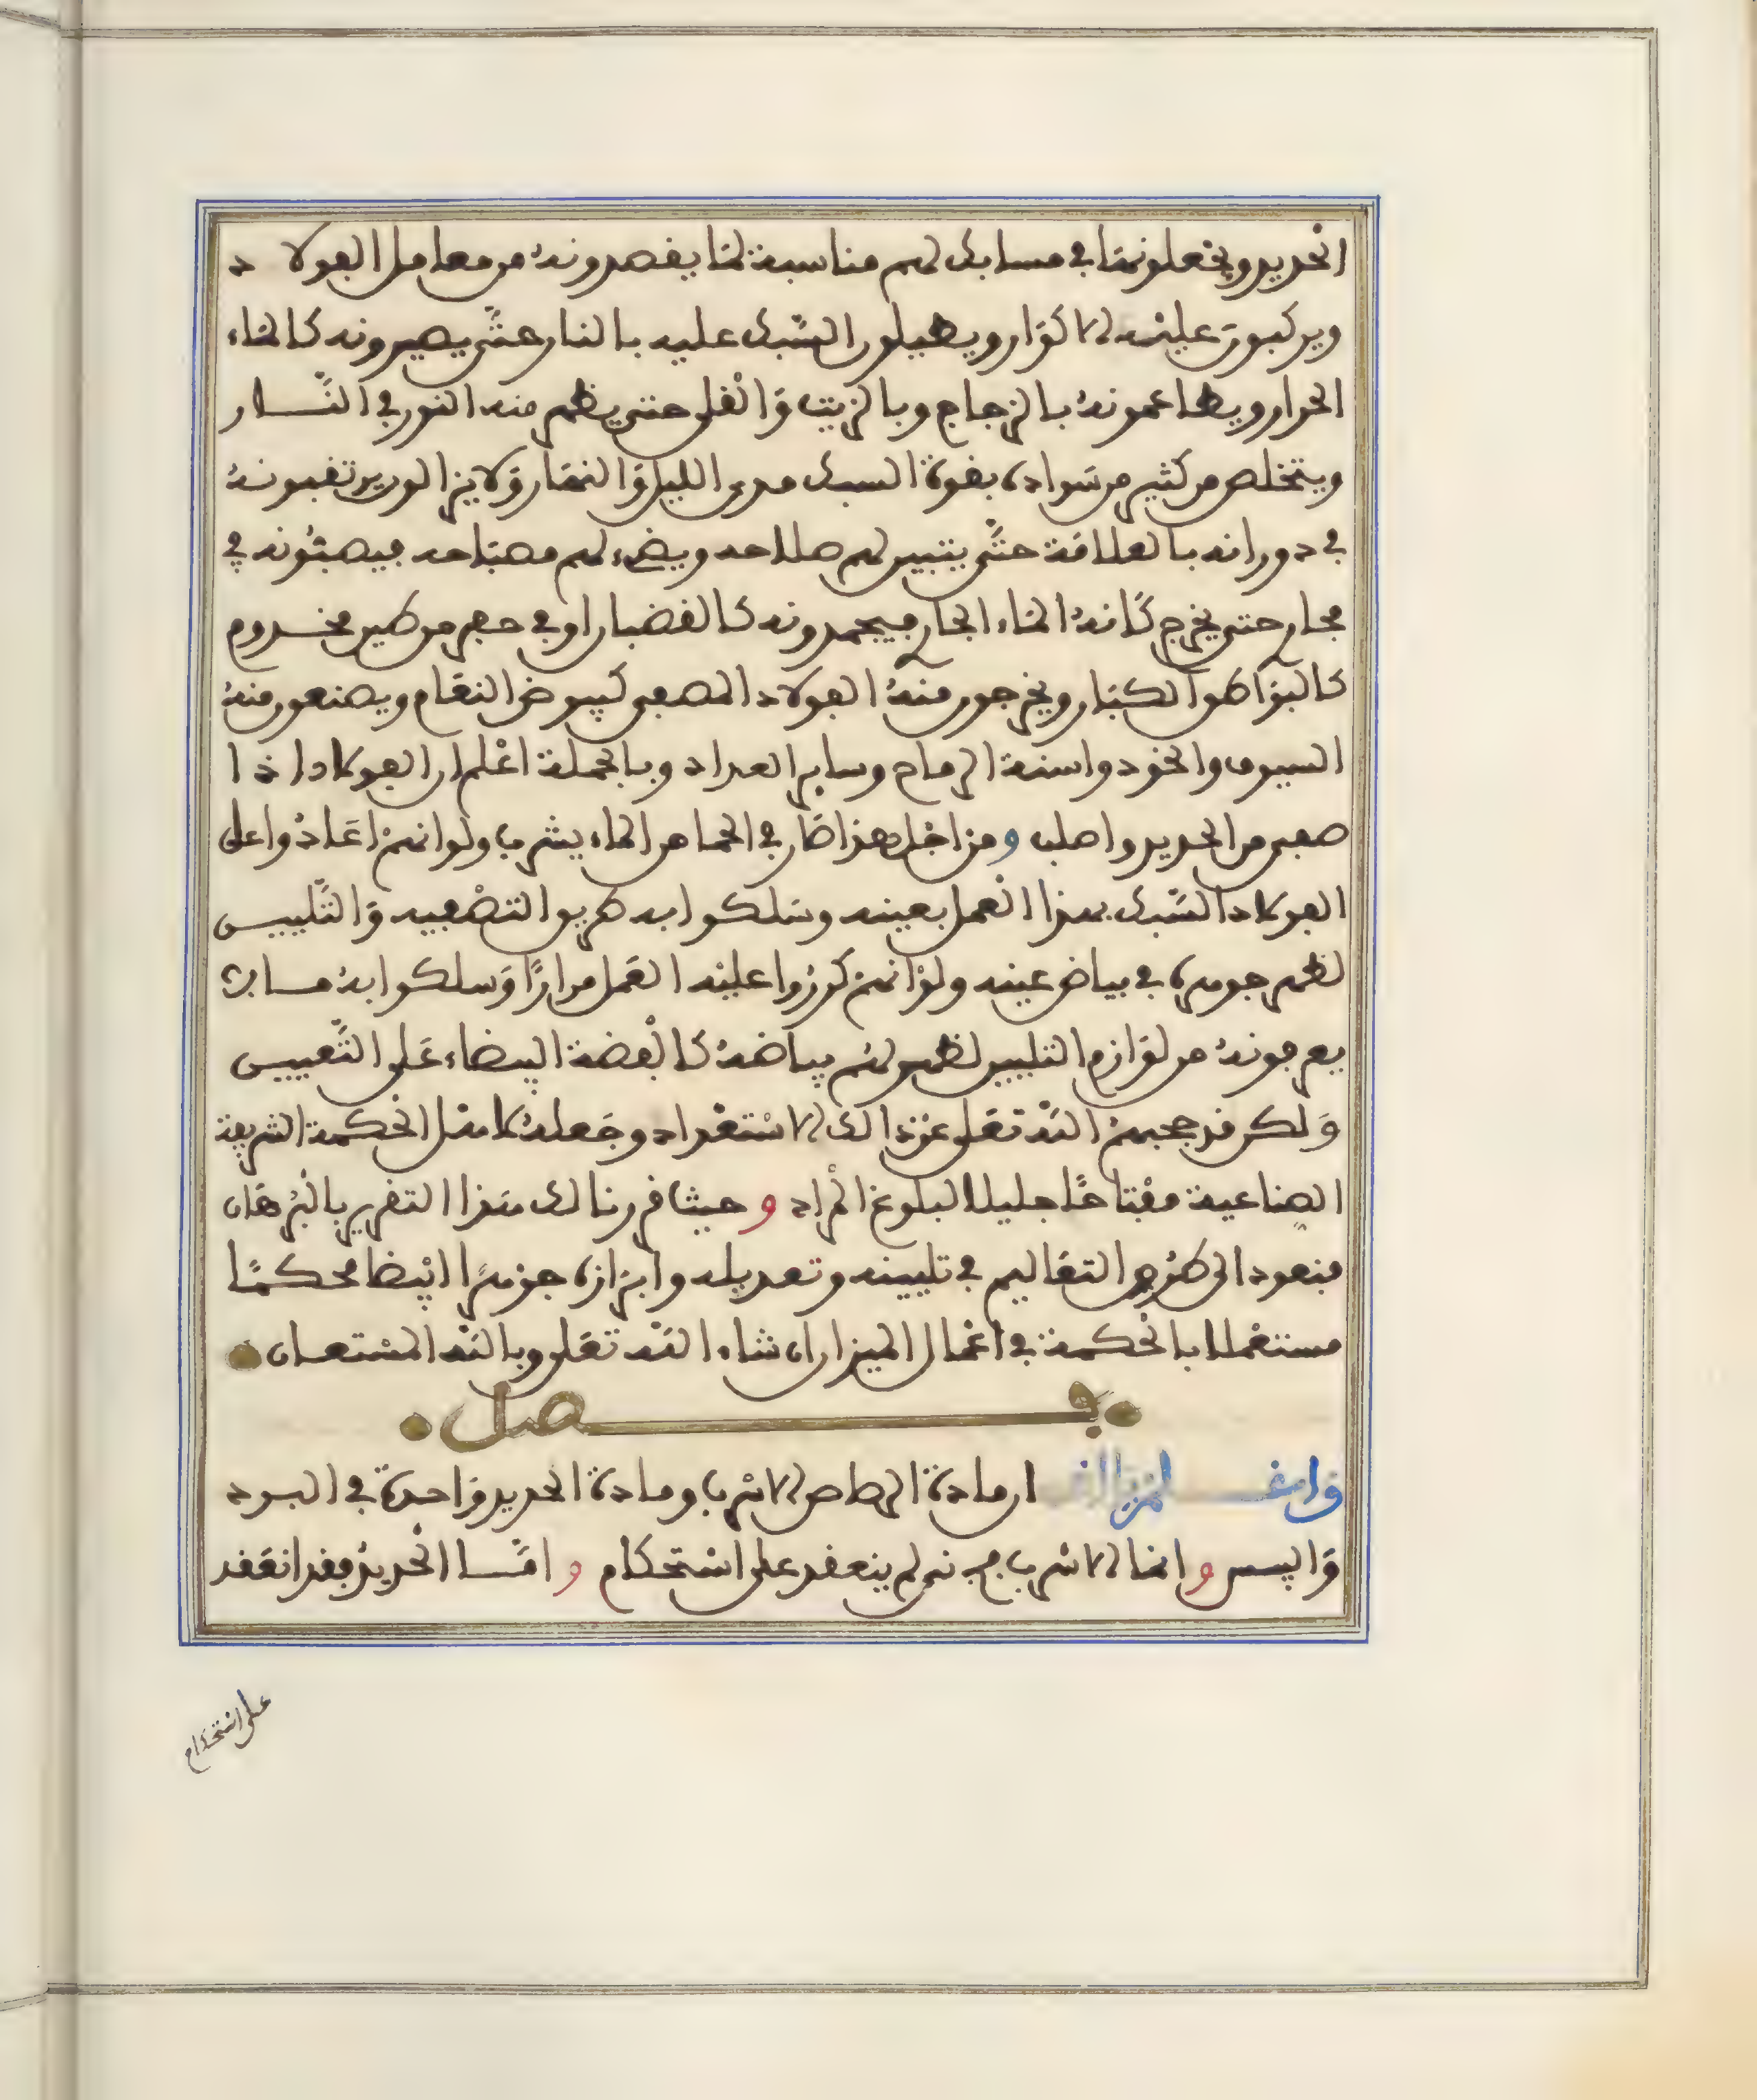 الحديد ويجعلونها في مسابك لهم مناسبة لما يقصدونه من معامل الفولاد
ويركبون عليه الاكوار ويطيلون السبك عليه بالنار حتى يصيرونه كالماء
الحرار ويطاعمونه بالزجاج وبالزيت والقلي حتى يظهر منه النور في النار
ويتخلص من كثير من سواده بقوة السبك مدى الليل والنهار ولا يزالون يرتقبونه
في دورانه بالعلامة حتى يتبين لهم صلاحه ويضيء لهم مصباحه فيصبونه في
مجار حتى يخرج كانه الماء الجار فيجمدونه كالقضبان او في حفر من طين مخدوم
كالبواطق الكبار ويخرجون منه الفولاد المصفى كبيض النعام ويصنعون منه
السيوف والخود واسنة الرماح وساير العداد وبالجملة اعلم ان الفولاد اذا
صفي من الحديد واصلب ومن اجل هذا صار في الحما من الماء يشرب ولو انهم اعادوا على
الفولاد السبك بهذا العمل بعينه وسلكوا به طريق التصعيد والتليين
لظهر جوهره في بياض عينه ولو انهم كرروا عليه العمل مرارا وسلكوا به ما
يعرفونه من لوازم التليين لظهر لهم بياضه كالفضة البيضاء على التعيين
ولكن قد حجبهم الله تعلى عن ذالك الاستعداد وجعله لاهل الحكمة الشريفة
الصناعية مفتاحا جليلا لبلوغ المراد وحيث قررنا لك هذا التقرير بالبرهان
فنعود الى طرح التعاليم في تليينه وتعديله وابرازه جوهرا ابيضا محكما
مستعملا بالحكمة في اعمال الميزان ان شاء الله تعلى وبالله المستعان
فصل
واعلم ان مادة الرصاص الاسرب ومادة الحديد واحدة في البرد
واليبس وانما الاسرب لم ينعقد على استحكام واما الحديد فقد انعقد
على استحكام